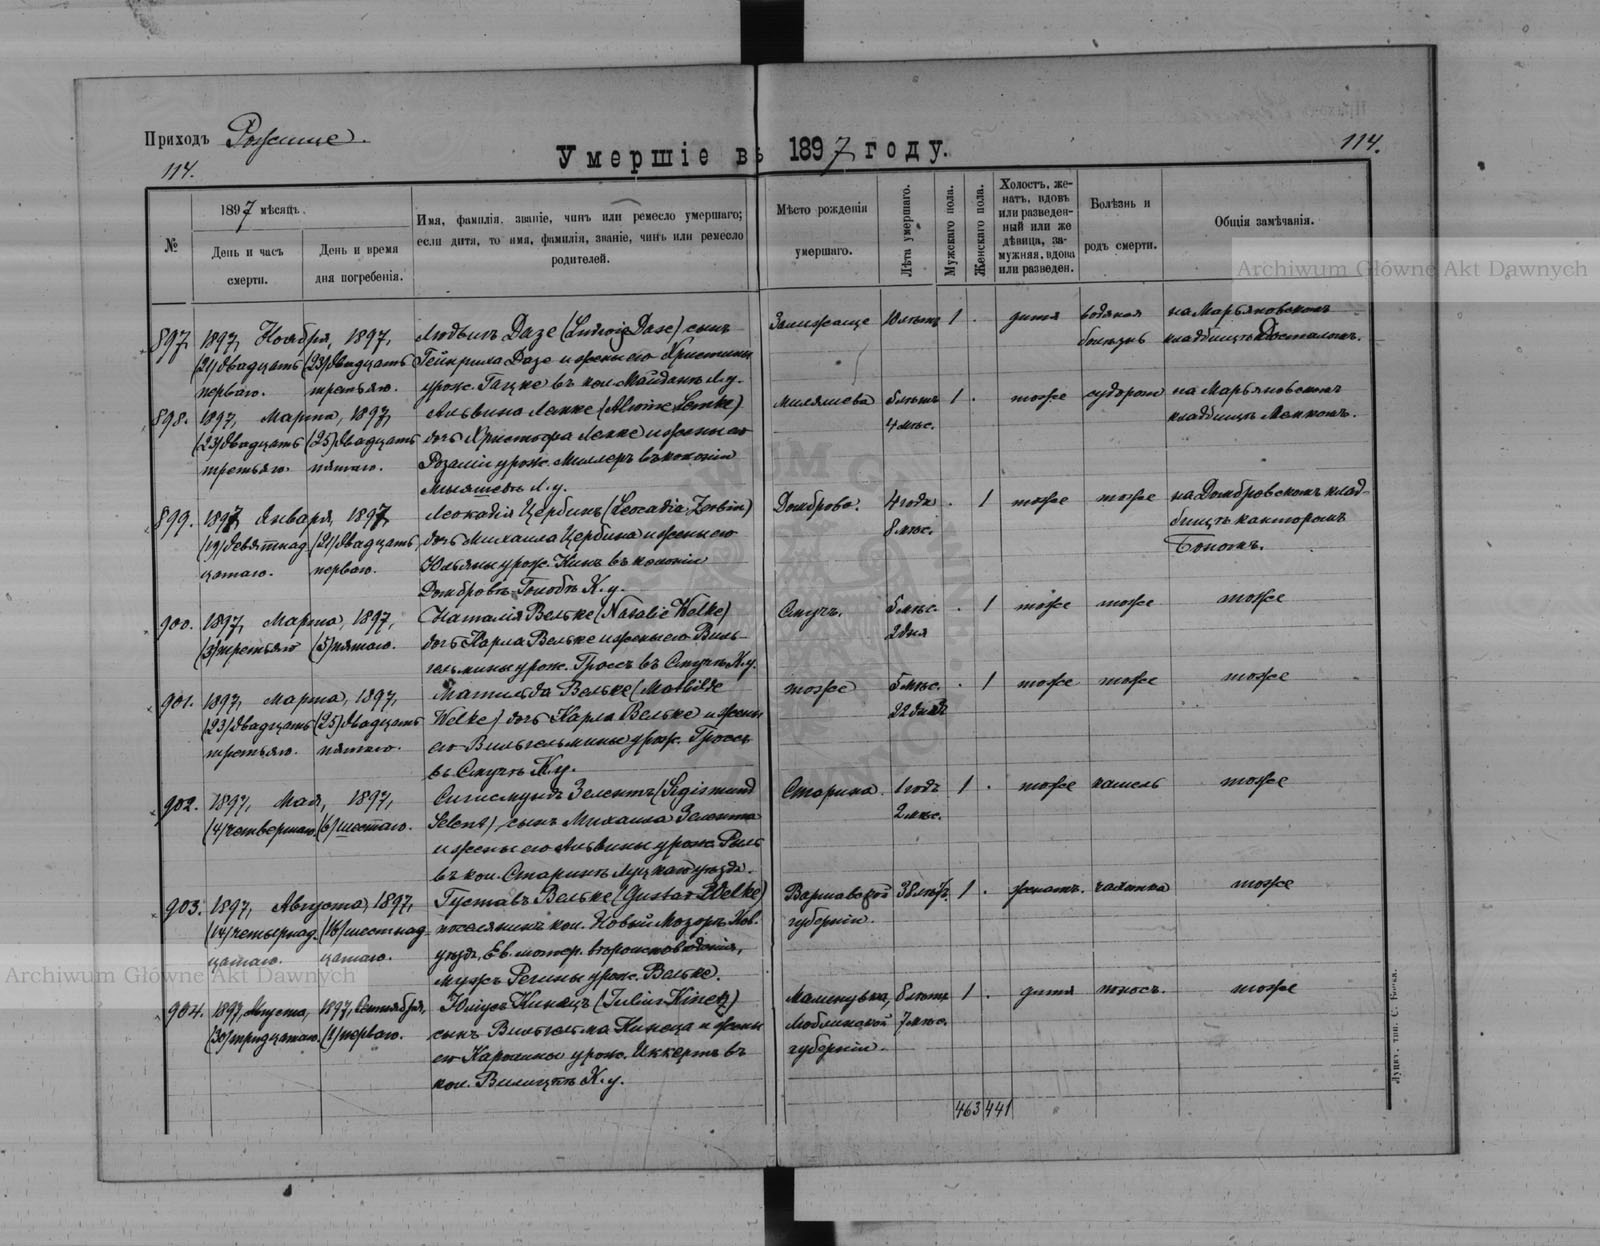 Приходъ Рожище.
114.
Умершіе въ 1897 году.
114.
№
1897 мѣсяцъ.
День и часъ смерти.
День и время дня погребенія.
Имя, фамилія, званіе, чинъ или ремесло умершаго;
если дитя, то имя, фамилія, званіе, чинъ или ремесло
родителей.
Мѣсто рожденія
умершаго.
Лѣта умершаго.
Мужскаго пола.
Женскаго пола.
Холостъ, же-
натъ, вдовъ
или разведен-
ный или же
дѣвица, за-
мужняя, вдова
или разведен.
Болѣзнь и
родъ смерти.
Общія замѣчанія.
Archiwum Główne Akt Dawnych
897. 1897, Ноября, 1897, Людвигъ Дазе (Ludwig Dase) сынъ 10 лѣтъ 1 . дитя водяная на Марьяновскомъ
(21) двадцать (23) двадцать Дазе и жены его Христины болѣзнь кладбищѣ
перваго. третьяго. урож. Гацке въ кол. Майданъ Л.у.
898. 1897, Марта, 1897, Альвина Лемке (Alwine Lemke) 5 лѣтъ 1 . тоже на Марьяновскомъ
(23) двадцать (25) двадцать дочь Христофа Лемке и жены его 4 мѣс. кладбищѣ
третьяго. пятаго. Розаліи урож. Миллеръ въ колоніи
Л.у.
899. 1897, Января, 1897, Леокадія Цербинъ (Leocadia Zerbin) Домброва. 4 года . 1 тоже тоже на Домбровскомъ клад-
(19) девятнад (21) двадцать дочь Михаила Цербина и жены его 8 мѣс. бищѣ канторомъ
цатаго. перваго. Юльяны урож. Кинъ въ колоніи
Домбровѣ К.у.
900. 1897, Марта, 1897, Наталія Вельке (Natalie Welke) 5 мѣс. . 1 тоже тоже тоже
(3) третьяго (5) пятаго. дочь Карла Вельке и жены его Виль- 2 дня
гельмины урож. Гроссъ въ К.у.
901. 1897, Марта, 1897, Матильда Вельке (Mathilde тоже 5 мѣс. . 1 тоже тоже тоже
(23) двадцать (25) двадцать Welke) дочь Карла Вельке и жены 22 дня
третьяго. пятаго. его Вильгельмины урож. Гроссъ
въ К.у.
902. 1897, Мая, 1897, Сигисмундъ Зелентъ (Sigismund Старика 1 годъ 1 . тоже кашель тоже
(4) четвертаго (6) шестаго. Selent), сынъ Михаила Зелента 2 мѣс.
и жены его Альвины урож.
въ кол. Луцкаго уѣзда.
903. 1897, Августа, 1897, Густавъ Вельке (Gustav Welke) Варшавской 38 лѣтъ 1 . женатъ. чахотка тоже
(14) четырнад (16) шестнад поселянинъ кол. Новый Мозоръ Ков. губерніи.
цатаго. цатаго. уѣзда, Ев.
мужъ Регины урож. Вельке.
Archiwum Główne Akt Dawnych
904. 1897, Августа, 1897, Сентября, Юліусъ Кинецъ (Julius Kinetz) 8 лѣтъ 1 . дитя поносъ. тоже
(30) тридцатаго. (1) перваго. сынъ Вильгельма Кинеца и жены Люблинской 7 мѣс.
его Каролины урож. Иккертъ въ губерніи.
кол. К.у.
463 441
Луцкъ, тип. С. Бокса.